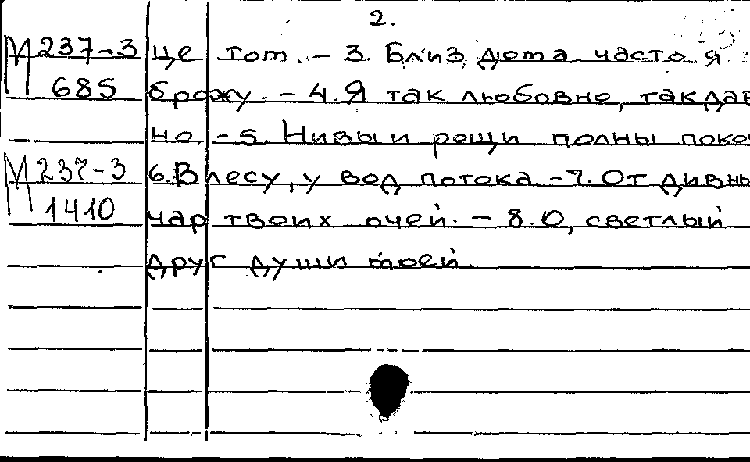 2.
М 237-3 це тот. - 3. Близ дома часто я
685 брожу. - 4. Я так любовно, так дав
но. - 5. Нивы и рощи полны покоя
М 237-3 6. В лесу, у вод потока. - 7. От дивны
1410 чар твоих очей. - 8. О, светлый
друг души моей.